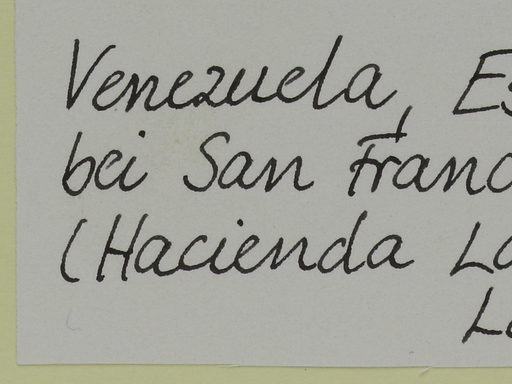 Venezuela, Es
bei San Franc
(Hacienda La
L